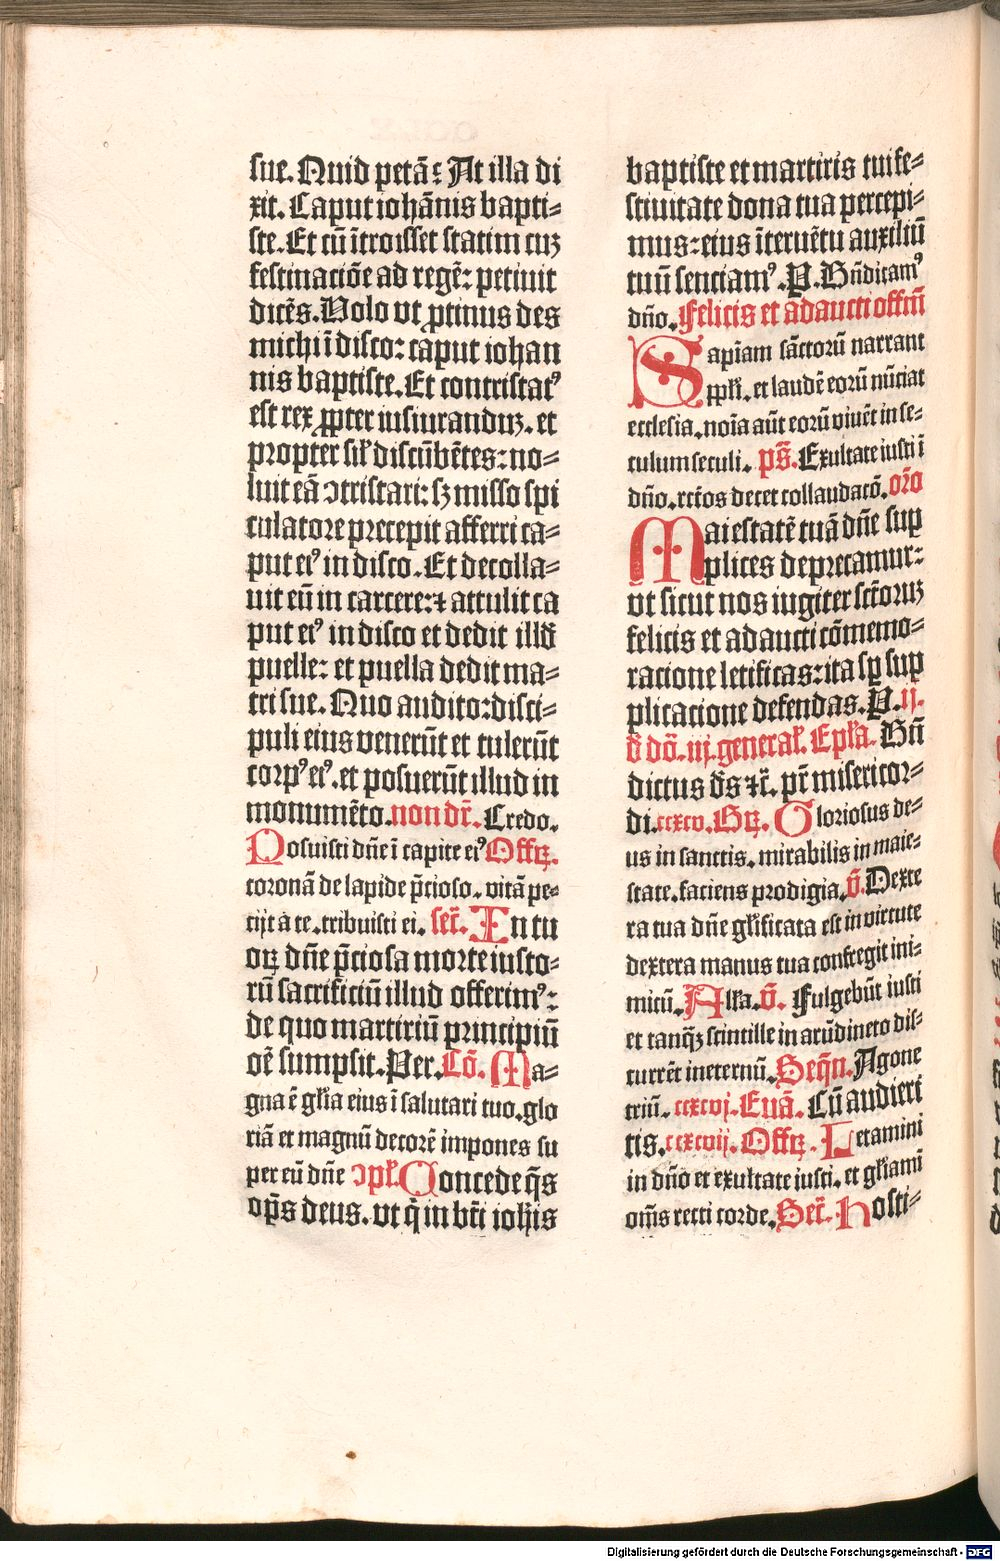 sue. Quid petā: At illa di
xit. Caput iohānis bapti⸗
ste. Et cū ītroisset statim cuꝫ
festinaciōe ad regē: petiuit
dicēs. Volo vt ꝓtinus des
michi ī disco: caput iohan
nis baptiste. Et contristatꝰ
est rex ꝓpter iusiuranduꝫ. et
propter sil̛ discūbētes: no⸗
luit eā ↄtristari: sꝫ misso spi
culatore precepit afferri ca⸗
put eiꝰ in disco. Et decolla⸗
uit eū in carcere: ⁊ attulit ca
put eiꝰ in disco et dedit illđ
puelle: et puella dedit ma⸗
tri sue. Quo audito: disci⸗
puli eius venerūt et tulerūt
corpꝰ eiꝰ. et posuerūt illud in
monumēto. non dr̄. Credo.
Posuisti dn̄e ī capite eiꝰ Offꝝ.
coronā de lapide p̄cioso. vitā pe⸗
tijt a te. tribuisti ei. secr̄. In tu
oꝝ dn̄e p̄ciosa morte iusto⸗
rū sacrificiū illud offerimꝰ:
de quo martiriū principiū
oē sumpsit. Per. Cō. Ma⸗
gna ē gl̛ia eius ī salutari tuo. glo
riā et magnū decorē impones su
per eū dn̄e ↄpl̛. Concede q̄s
op̄s deus. vt q̄ in bt̄i ioh̄is
baptiste et martiris tui fe⸗
stiuitate dona tua percepi⸗
mus: eius īteruētu auxiliū
tuū senciamꝰ. P. Bn̄dicamꝰ
dn̄o. Felicis et adaucti offm̄
Sapīam sāctorū narrant
ppl̛i. et laudē eorū nūciat
ecclesia. noīa aūt eorū viuēt in se⸗
culum seculi. ps̄. Exultate iusti ī
dn̄o. rectos decet collaudacō. oro
Maiestatē tuā dn̄e sup
plices deprecamur:
vt sicut nos iugiter sc̄toruꝫ
felicis et adaucti cōmemo⸗
racione letificas: ita sꝑ sup
plicacione defendas. P. ij.
đ dō. iij. general̛. Epl̛a. Bn̄
dictus đs ⁊c̄. pr̄ misericor⸗
di. ccxcv. Gꝝ. Gloriosus de⸗
us in sanctis. mirabilis in maie⸗
state. faciens prodigia. v̄. Dexte
ra tua dn̄e gl̛ificata est in virtute
dextera manus tua confregit ini⸗
micū. All̛a. v̄. Fulgebūt iusti
et tanq̄ꝫ scintille in arūdineto dis⸗
currēt ineternū. Seq̄n. Agone
triū. ccxcvj. Euā. Cū audieri
tis. ccxcvij. Offꝝ. Letamini
in dn̄o et exultate iusti. et gl̛iamī
om̄s recti corde. Secr̄. Hosti⸗
Digitalisierung gefördert durch die Deutsche Forschungsgemeinschaft - DFG